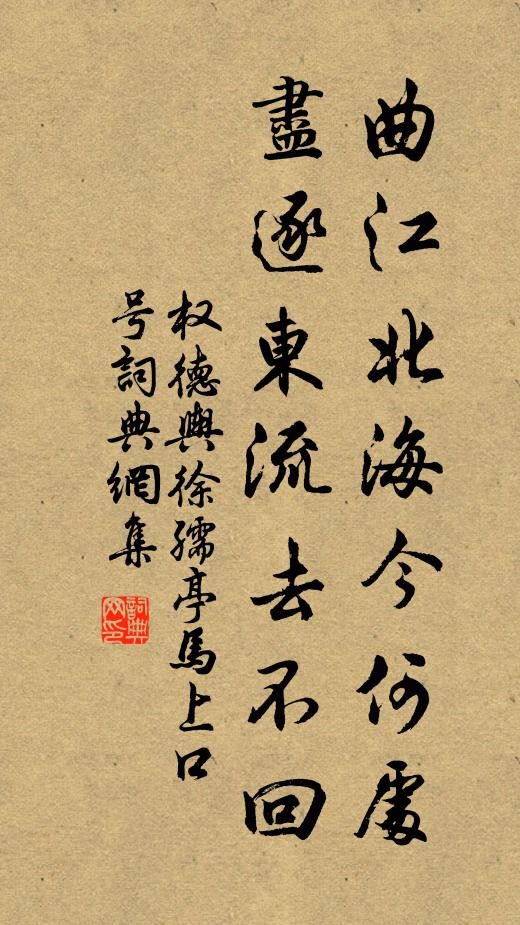 曲江北海今何處
盡逐東流去不回
权德輿徐孺亭馬上口
号詞典網集
詞典网印